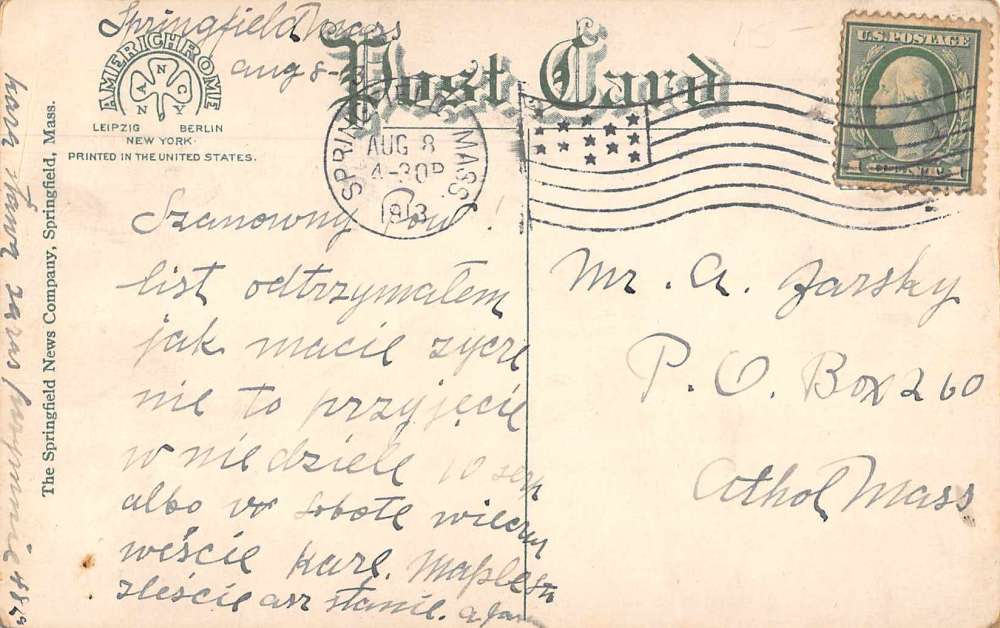 Springfield Mass
Aug 8-13
Post Card
AMERICHROME
NANCY
LEIPZIG BERLIN
NEW YORK
PRINTED IN THE UNITED STATES.
The Springfield News Company, Springfield, Mass.
SPRINGFIELD MASS.
AUG 8
4-30P
1913
U.S. POSTAGE
1 1
Szanowny
list odtrzymałem
jak macie zycze
nie to przyjęcie
w niedziele 10
albo w sobote
weście kare. Maple st
zleście
Mr. A. Zarsky
P.O. Box 260
Athol Mass